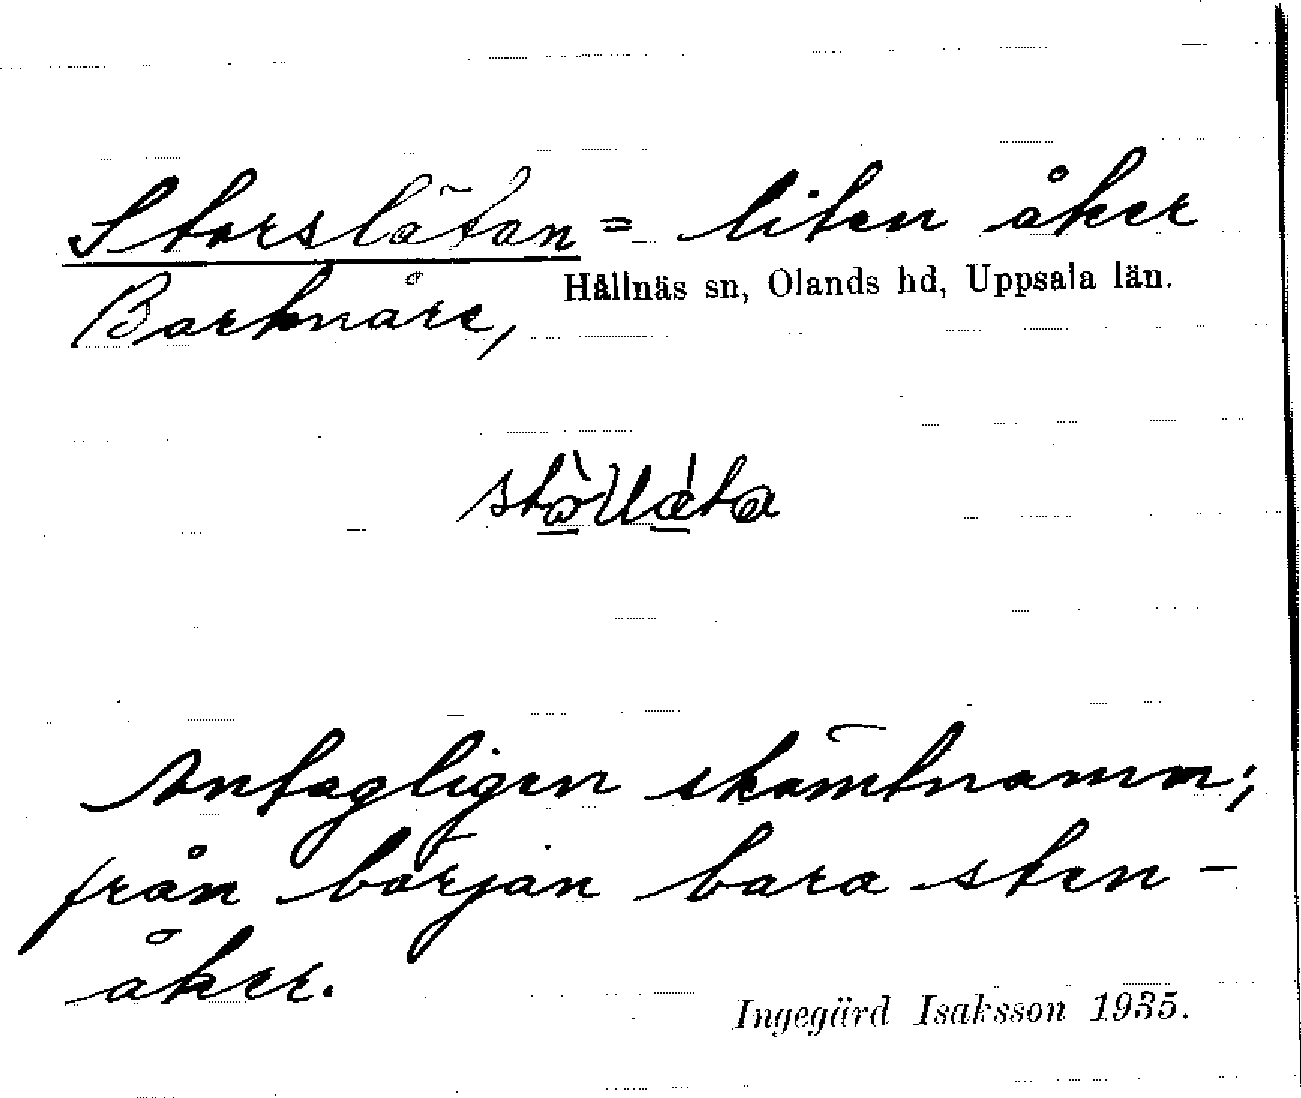 Storslätan = liten åker
Barknåre, Hållnäs sn, Olands hd, Uppsala län.
Antagligen skämtnamn;
från början bara sten-
åker.
Ingegärd Isaksson 1935.